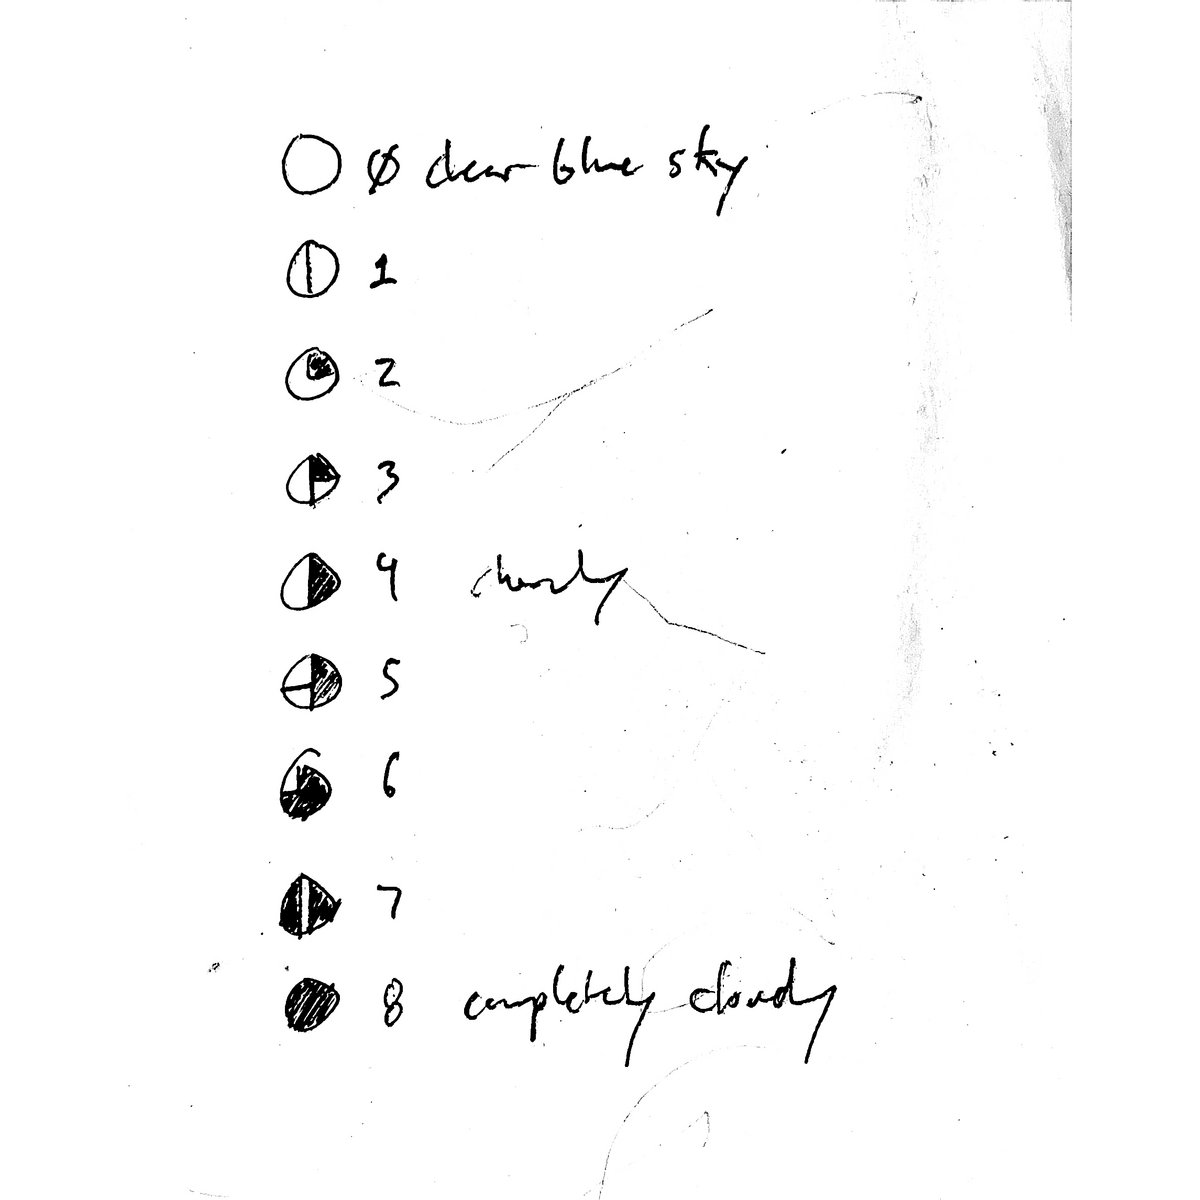 Ø clear blue sky
1
2
3
4 cloudy
5
6
7
8 completely cloudy